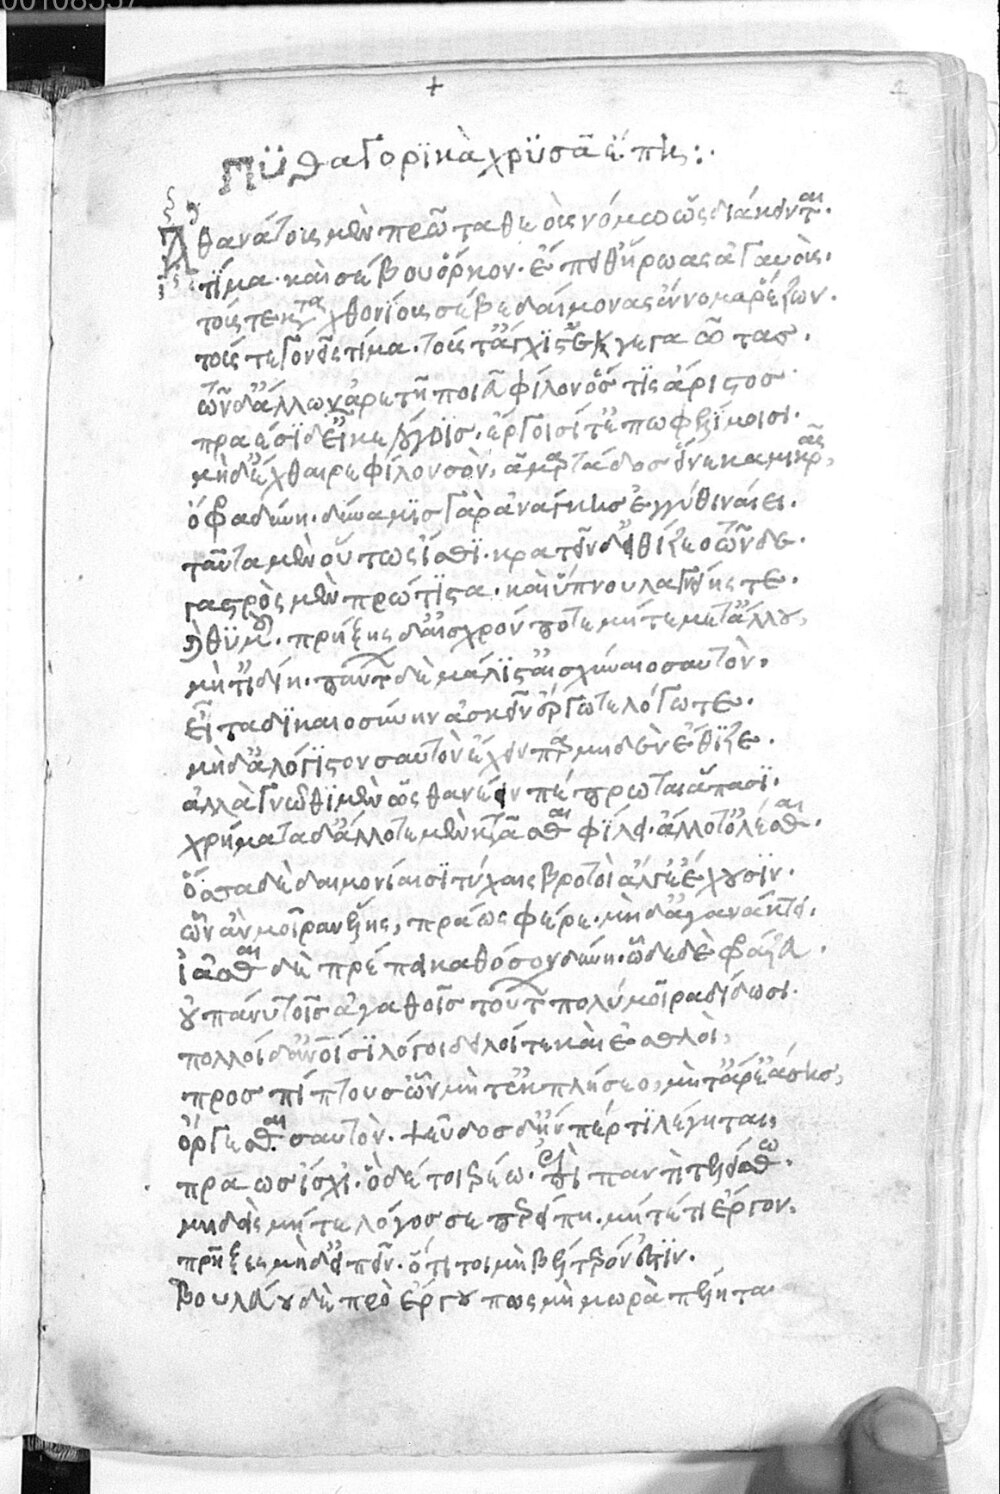 00108557
+
Πϋθαγορϊκὰ χρϋσᾶ ἔπη:·
Ἀθανάτους μὲν πρῶτα θεοὺς νόμω ὡς διάκεινται.
τίμα· καὶ σέβου ὅρκον· ἔπειθ' ἥρωας ἀγαυούς.
τούς τε καταχθονίους σέβε δαίμονας ἔννομα ῥέζων.
τούς τε γονεῖς τίμα. τούς τ' ἄγχιστ' ἐκγεγαῶτας.
τῶν δ' ἄλλων ἀρετῆ ποιεῦ φίλον ὅς τϊς ἄριστος
πραέσϊ δ' εἶκε λόγοϊς. ἔργοισί τ' ἐπωφελίμοισι.
μὴδ' ἔχθαιρε φίλον σὸν, ἁμαρτάδος εἵνεκα μικρᾶς,
ὄφρα δύνη. δύναμϊς γὰρ ἀνάγκης ἐγγύθι ναίει.
ταῦτα μὲν οὕτως ἴσθϊ. κρατεῖν δ' εἰθίζεο τῶνδε.
γαστρὸς μὲν πρώτϊστα. καὶ ὕπνου λαγνείης τε.
καὶ θϋμοῦ. πρήξης δ' αἰσχρόν ποτε μήτε μετ' ἄλλου,
μήτ' ἰδίη. πάντων δὲ μάλϊστ' αἰσχύναιο σαυτὸν,
εἶτα δϊκαιοσύνην ἀσκεῖν ἔργω τε λόγω τε.
μὴδ' ἀλόγϊστον σαυτὸν ἔχειν περὶ μηδὲν ἔθϊζε.
ἀλλὰ γνῶθϊ μὲν ὡς θανέειν πέπρωται ἅπασϊ.
χρήματα δ' ἄλλοτε μὲν κτᾶσθαι φϊλεῖ. ἄλλοτ' ὀλέσθαι.
ὅσσα δὲ δαιμονίαισϊ τύχαις βροτοὶ ἄλγε' ἔχουσϊν.
ὧν ἂν μοῖραν ἕλης, πράως φέρε. μὴδ' ἀγανάκτει.
ἰᾶσθαι δὲ πρέπει καθόσον δύνη. ὧδε δὲ φράζευ.
οὐ πάνυ τοῖς ἀγαθοῖς τούτων πολὺ μοῖρα δίδωσι.
πολλοὶ δ' ἀνθρώποισϊ λόγοι δειλοί τε καὶ ἐσθλοὶ,
προσπίπτουσ' ὧν μήτ' ἐκπλήσσεο, μήτ' ἄρ' ἐάσης,
εἴργεσθαι σαυτόν. ψεῦδος δ' ἤν πέρ τϊ λέγηται,
πράως ἴσχε. ὃ δέ τοι ἐρέω. ἐπὶ παντὶ τελείσθω.
μηδεὶς μήτε λόγος σε παρείπη. μήτέ τι ἔργον.
πρῆξαι μὴδ' εἰπεῖν. ὅτι τοι μὴ βέλτερόν ἐστϊν.
Βουλεύου δὲ πρὸ ἔργου πως μὴ μωρὰ πέληται